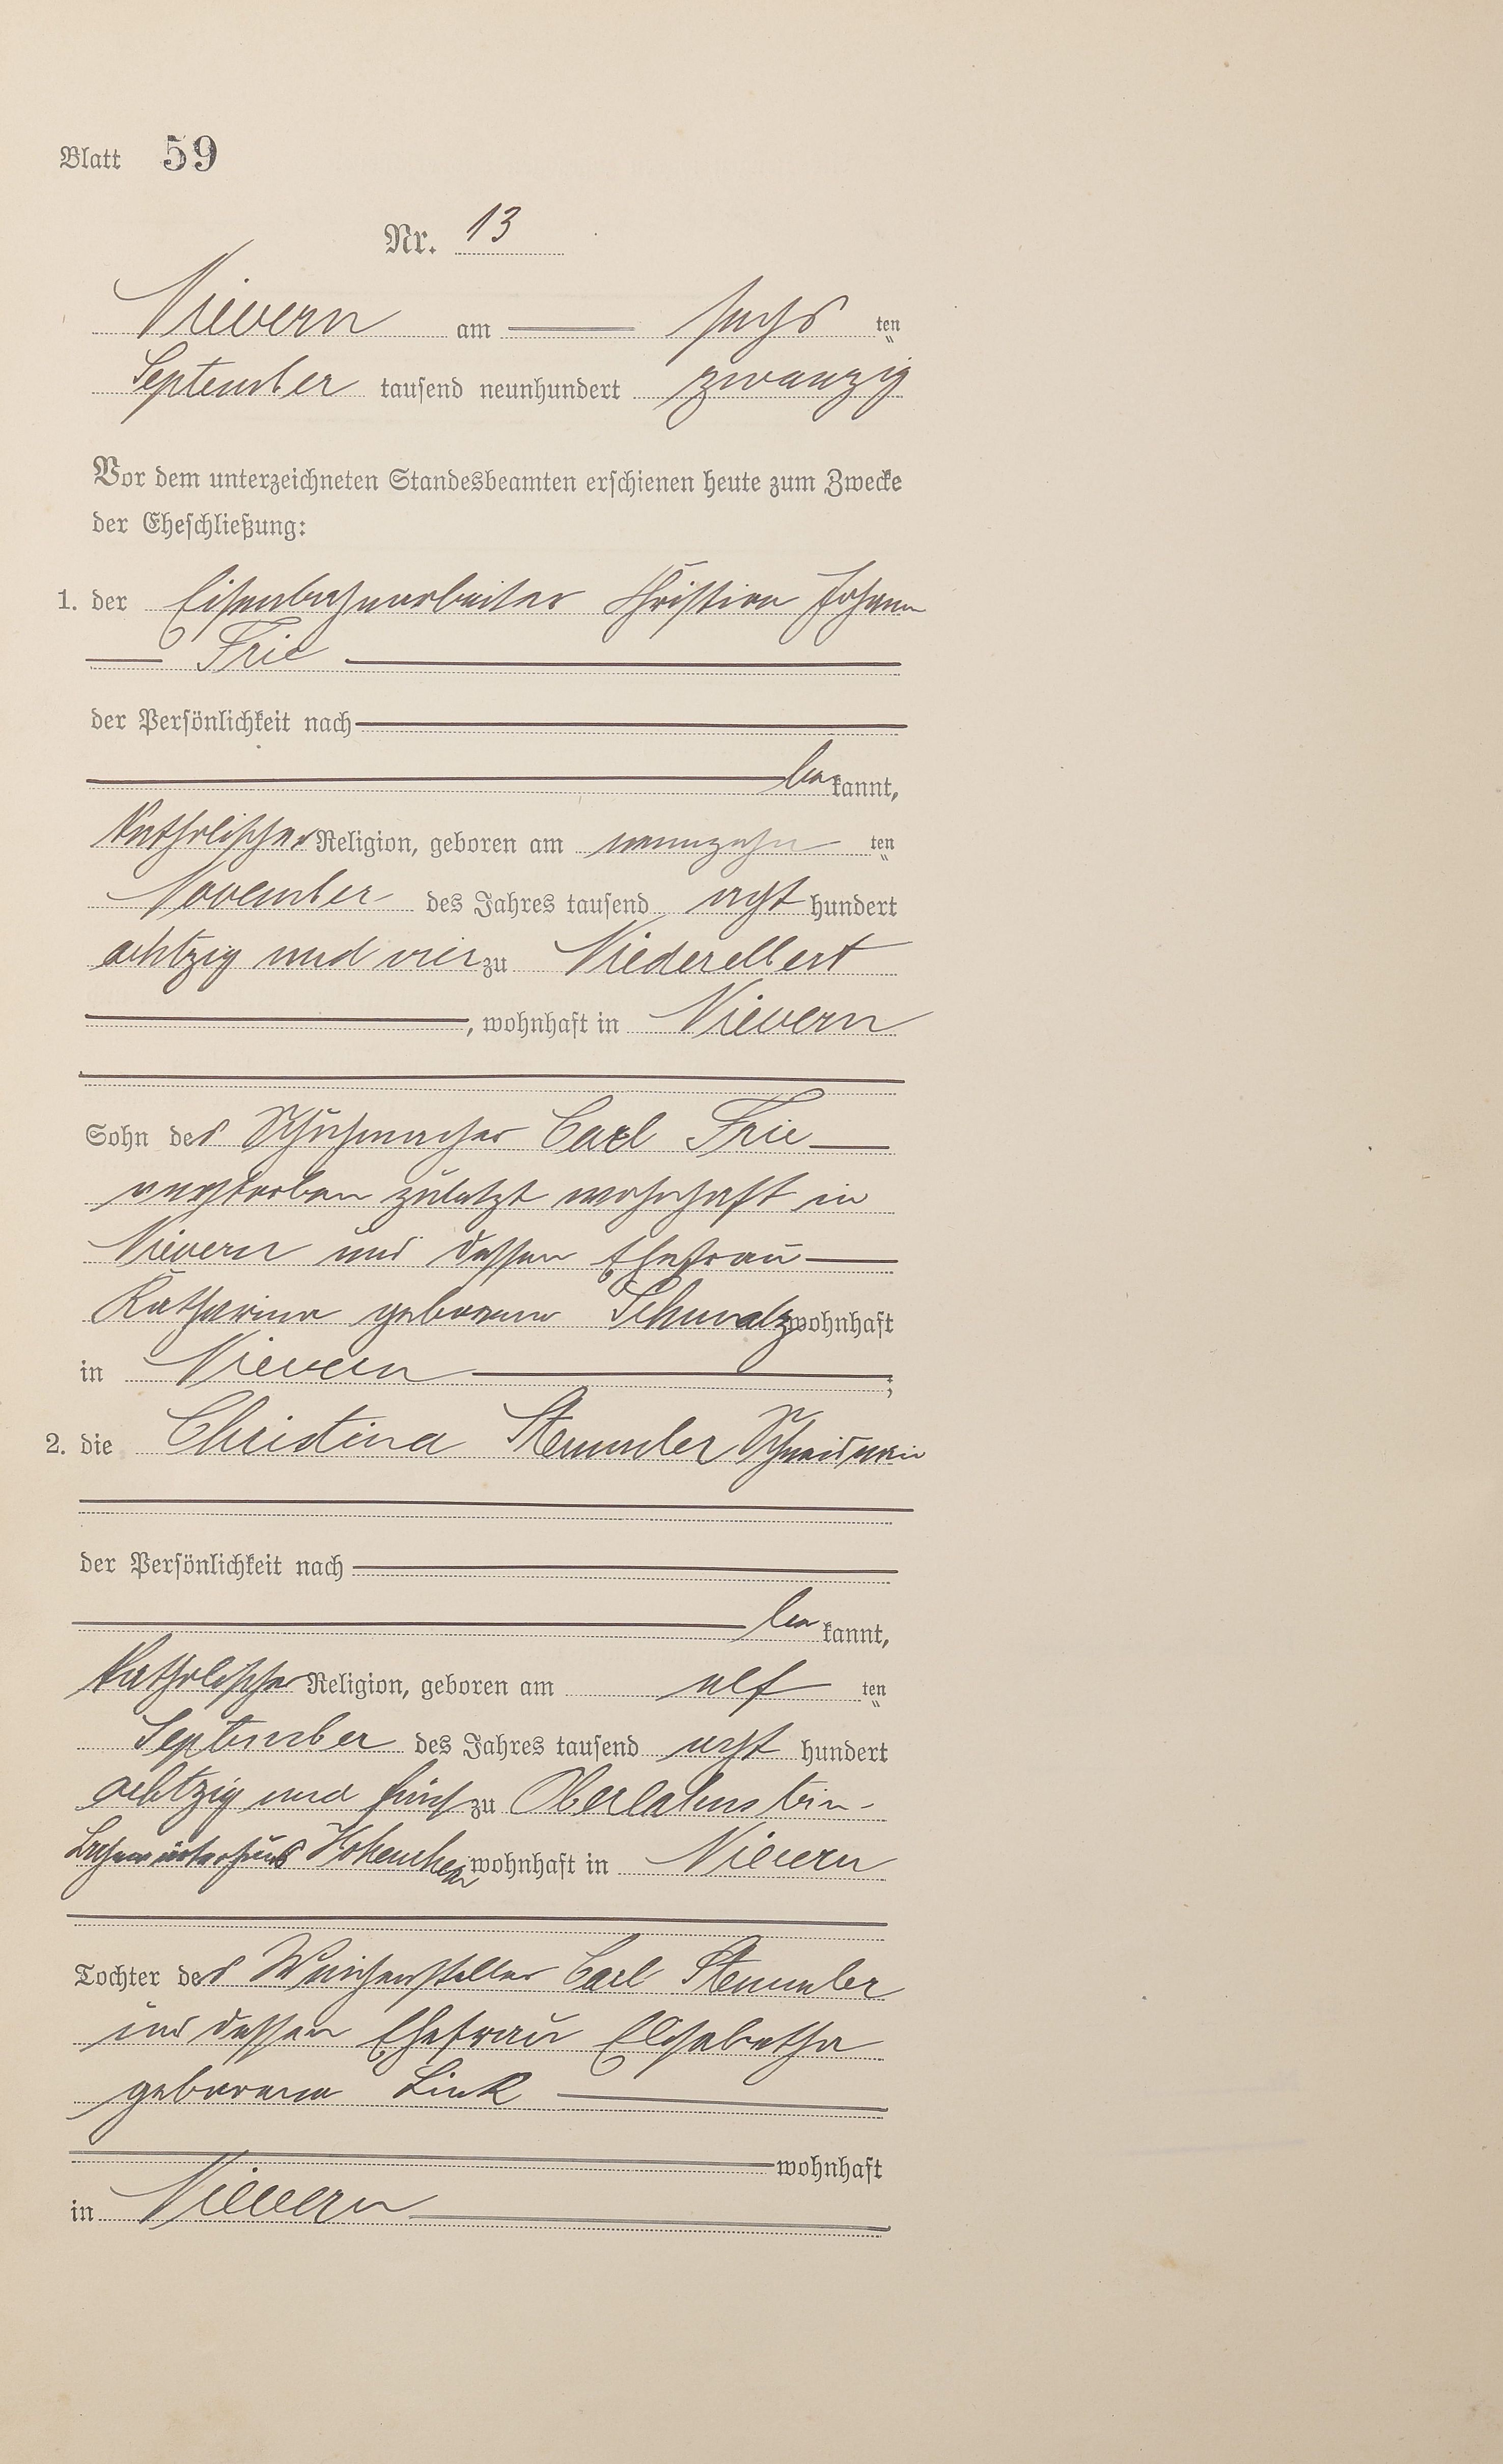 Blatt 59
Nr. 13
Nievern am sechsten
September tausend neunhundert zwanzig
Vor dem unterzeichneten Standesbeamten erschienen heute zum Zwecke
der Eheschließung:
1. der Eisenbahnarbeiter Christian Johann
Frie
der Persönlichkeit nach
bekannt,
katholischer Religion, geboren am neunzehnten
November des Jahres tausend acht hundert
achtzig und vier zu Niederelbert
, wohnhaft in Nievern
Sohn des Schuhmacher Carl Frie
verstorben zuletzt wohnhaft in
Nievern und dessen Ehefrau
Katharina geborene Schmalz wohnhaft
in Nievern ;
2. die Christina Stemmler Schneiderin
der Persönlichkeit nach
bekannt,
katholischer Religion, geboren am elften
September des Jahres tausend acht hundert
achtzig und fünf zu Oberlahnstein
wohnhaft in Nievern
Tochter des Weichensteller Carl Stemmler
und dessen Ehefrau Elisabetha
geborene Link
wohnhaft
in Nievern